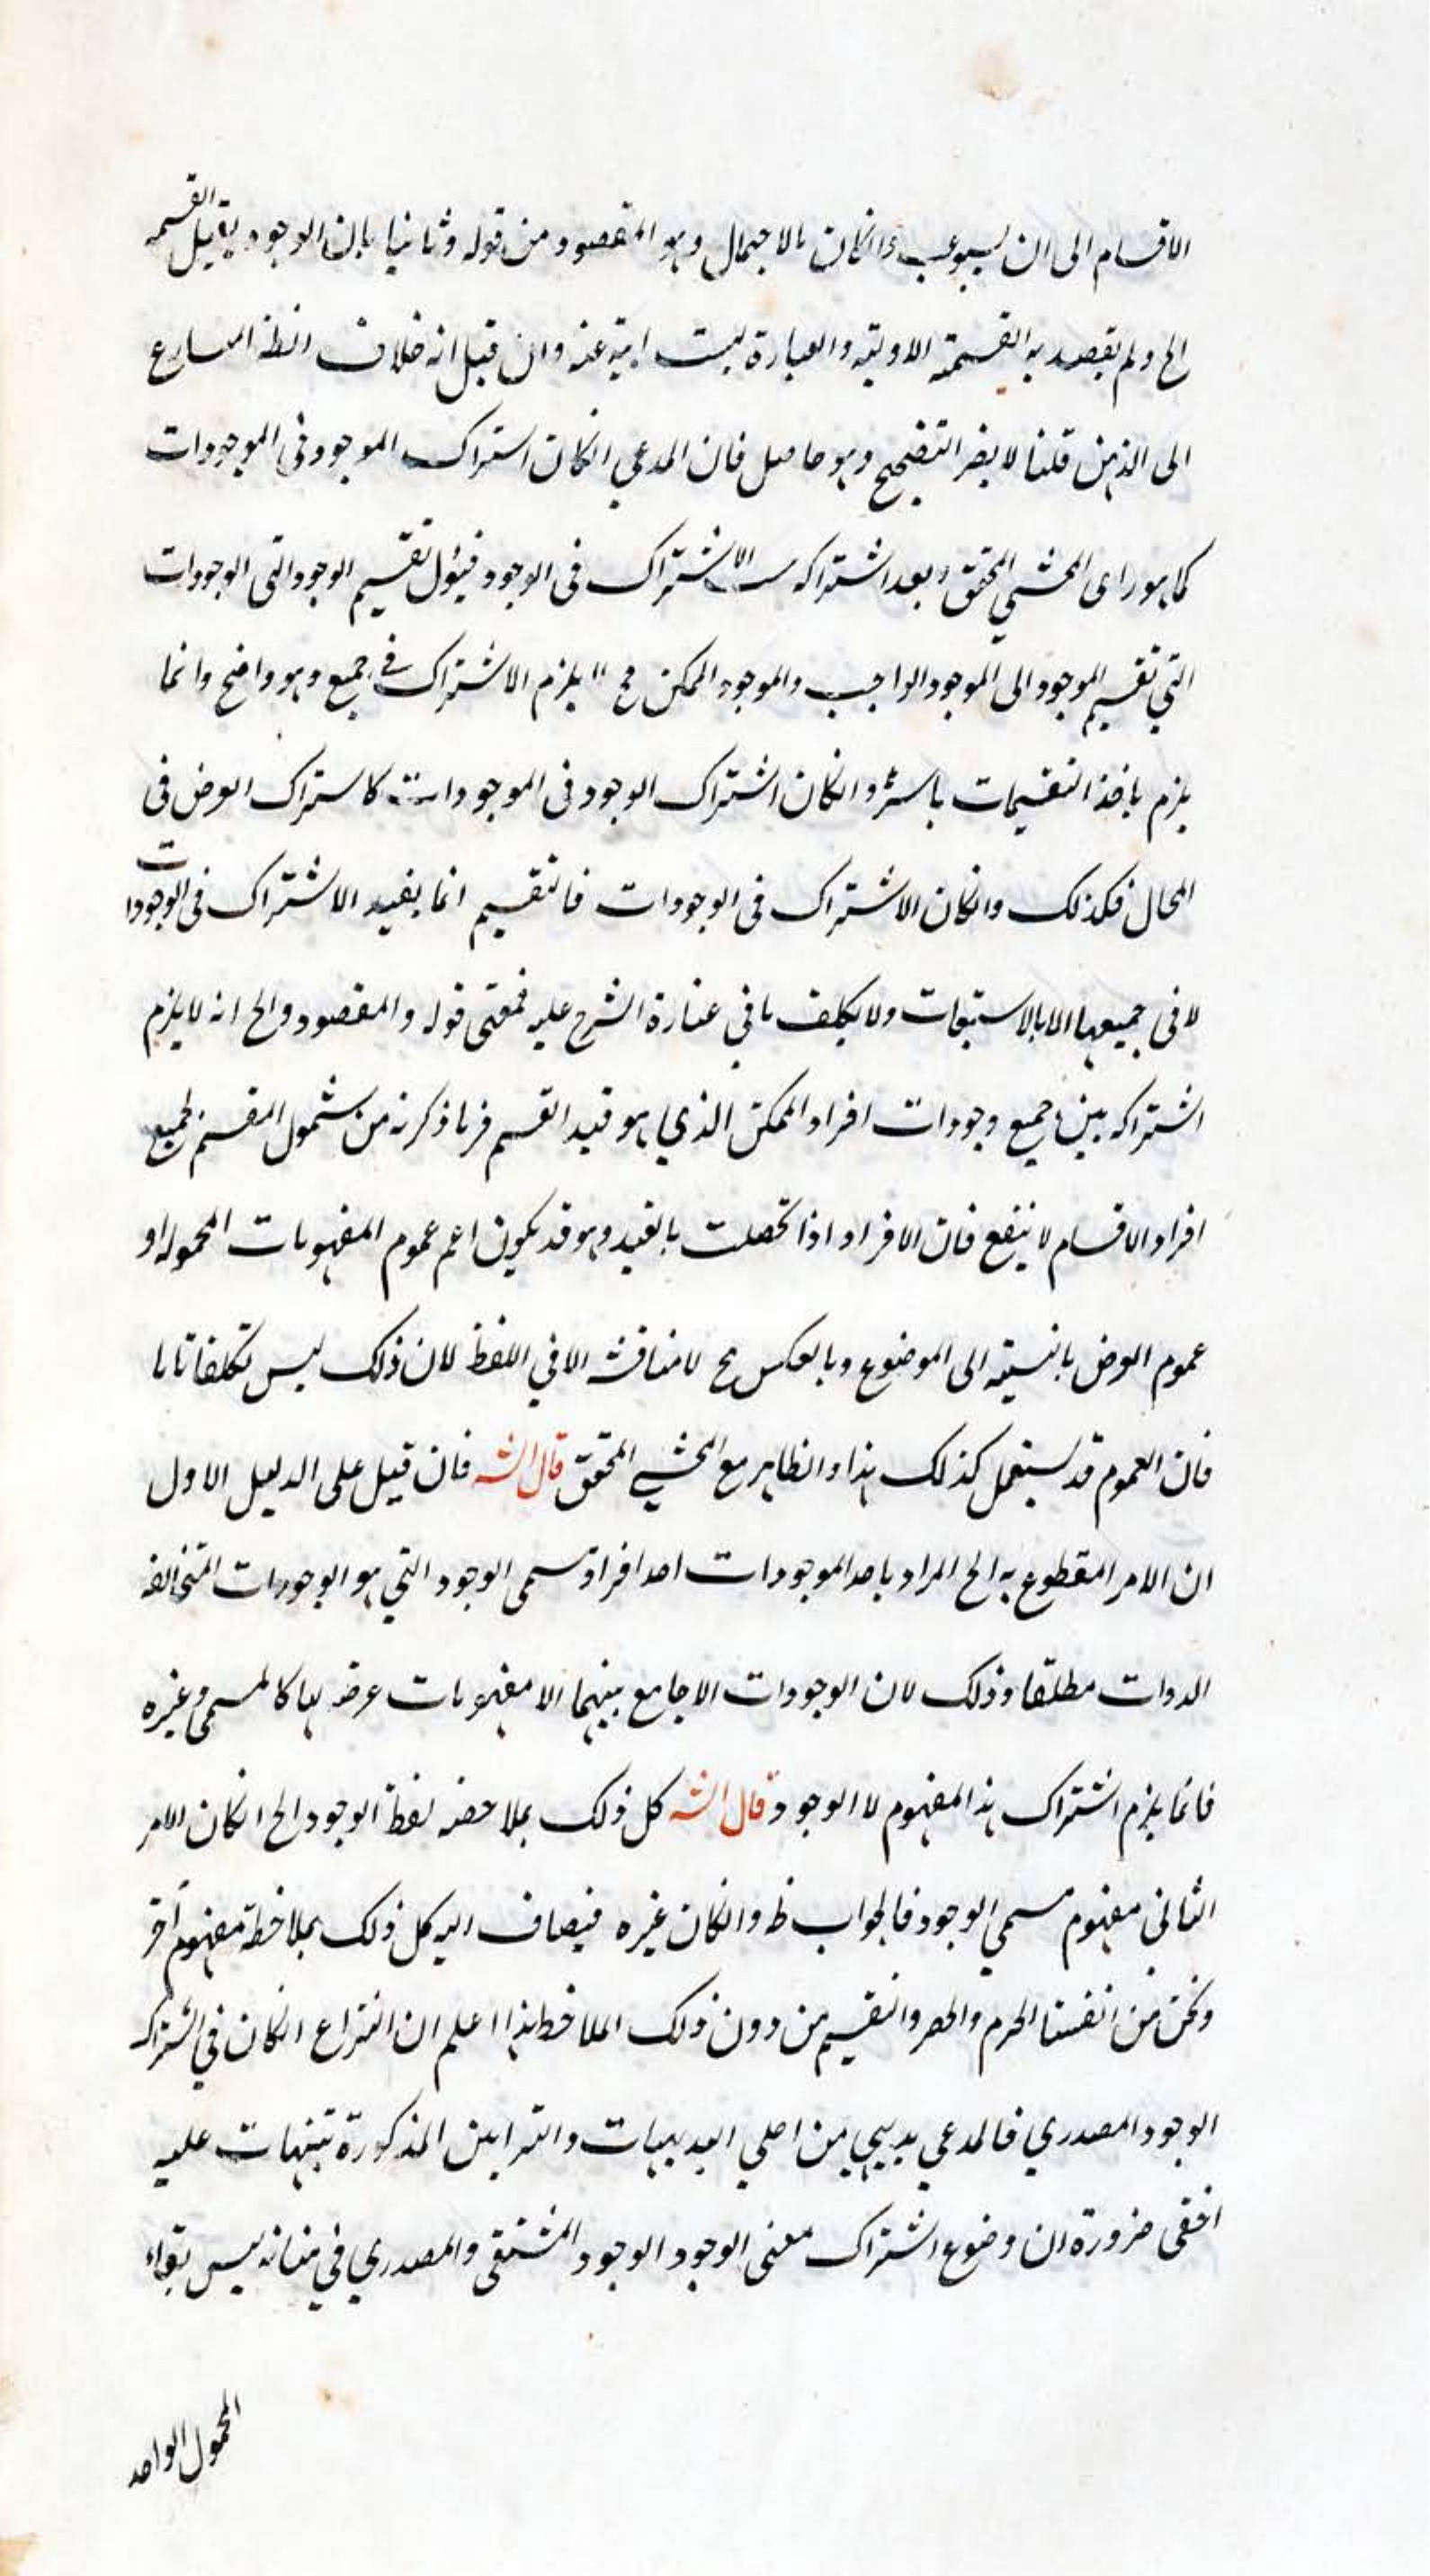 الاقسام الى ان يستوعب وانكان بالاجمال وهو المقصود من قوله وثانيا بان الوجود يقبل القسمه
الخ ولم يقصد به القسمة الاولية والعبارة ليست ابية عنه وان قيل انه خلاف الظ المسارع
الى الذهن قلنا لا يضر التصحيح وهو حاصل فان المدعي انكان استراك الموجود في الموجودات
كما هو راى المحشي المحقق وبعد اشتراكه الاشتراك في الوجود فيئول تقسيم الوجود الى الوجودات
التي تقسيم الموجود الى الموجود الواجب والموجود الممكن فح لا يلزم الاشتراك في جميع وهو واضح وانما
يلزم باخذ التقسيمات باسرها وانكان اشتراك الوجود في الموجودات كاستراك العرض في
المحال فكذلك وانكان الاشتراك في الوجودات فالتقسيم انما يفيد الاشتراك في الوجودات
لا في جميعها الا بالاستتباعات ولا يكلف ما في عبارة الشرح عليه فمعنى قوله والمقصود والخ انه لا يلزم
اشتراكه بين جميع وجودات افراد الممكن الذي هو قيد القسم فما ذكرته من شمول المقسم لجميع
افراد الاقسام لا ينفع فان الافراد اذا تحصلت بالقيد وهو قد يكون اعم عموم المفهومات المحموله او
عموم العرض بالنسبته الى الموضوع وبالعكس فح لا مناقشه الا في اللفظ لان ذلك ليس تكلفا تاما
فان العموم قد يستعمل كذلك هذا والظاهر مع المحشي المحقق قال الشه فان قيل على الدليل الاول
ان الامر المقطوع به الخ المراد باحد الموجودات احد افراد مسمى الوجود التي هو الوجودات المتخالفه
الدوات مطلقا وذلك لان الوجودات لا جامع بينهما الا مفهومات عرضه لها كالمسمى وغيره
فانما يلزم اشتراك هذا المفهوم لا الوجود قال الشه كل ذلك بملاحضه لفظ الوجود الخ انكان الامر
الثاني مفهوم مسمي الوجود فالجواب ظ وانكان غيره فيضاف اليه كل ذلك بملاحظة مفهوم آخر
ونحن من انفسنا الجزم والحصر والتقسيم من دون ذلك الملاحظه هذا اعلم ان النزاع انكان في اشتراك
الوجود المصدري فالمدعي بديهي من اجلي البديهيات والبراهين المذكورة تنبيهات عليه
اخفى ضرورة ان وضوع اشتراك معنى الوجود الوجود المشتقي والمصدري في مثابه ليس بقواء
المحمول الواحد